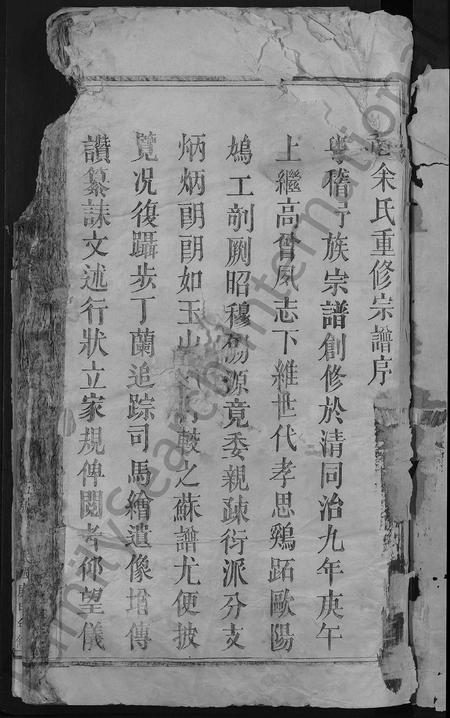 余氏重修宗譜序
粤稽予族宗譜創修於清同治九年庚午
上繼高曾夙志下維世代孝思鷄跖歐陽
鳩工剞劂昭穆源竟委親疎衍派分支
炳炳朗朗如玉山較之蘇譜尤便披
覽况復躡步丁蘭追踪司馬繪遺像增傳
讚纂誄文述行狀立家規俾閱者仰望儀
FamilySearch International